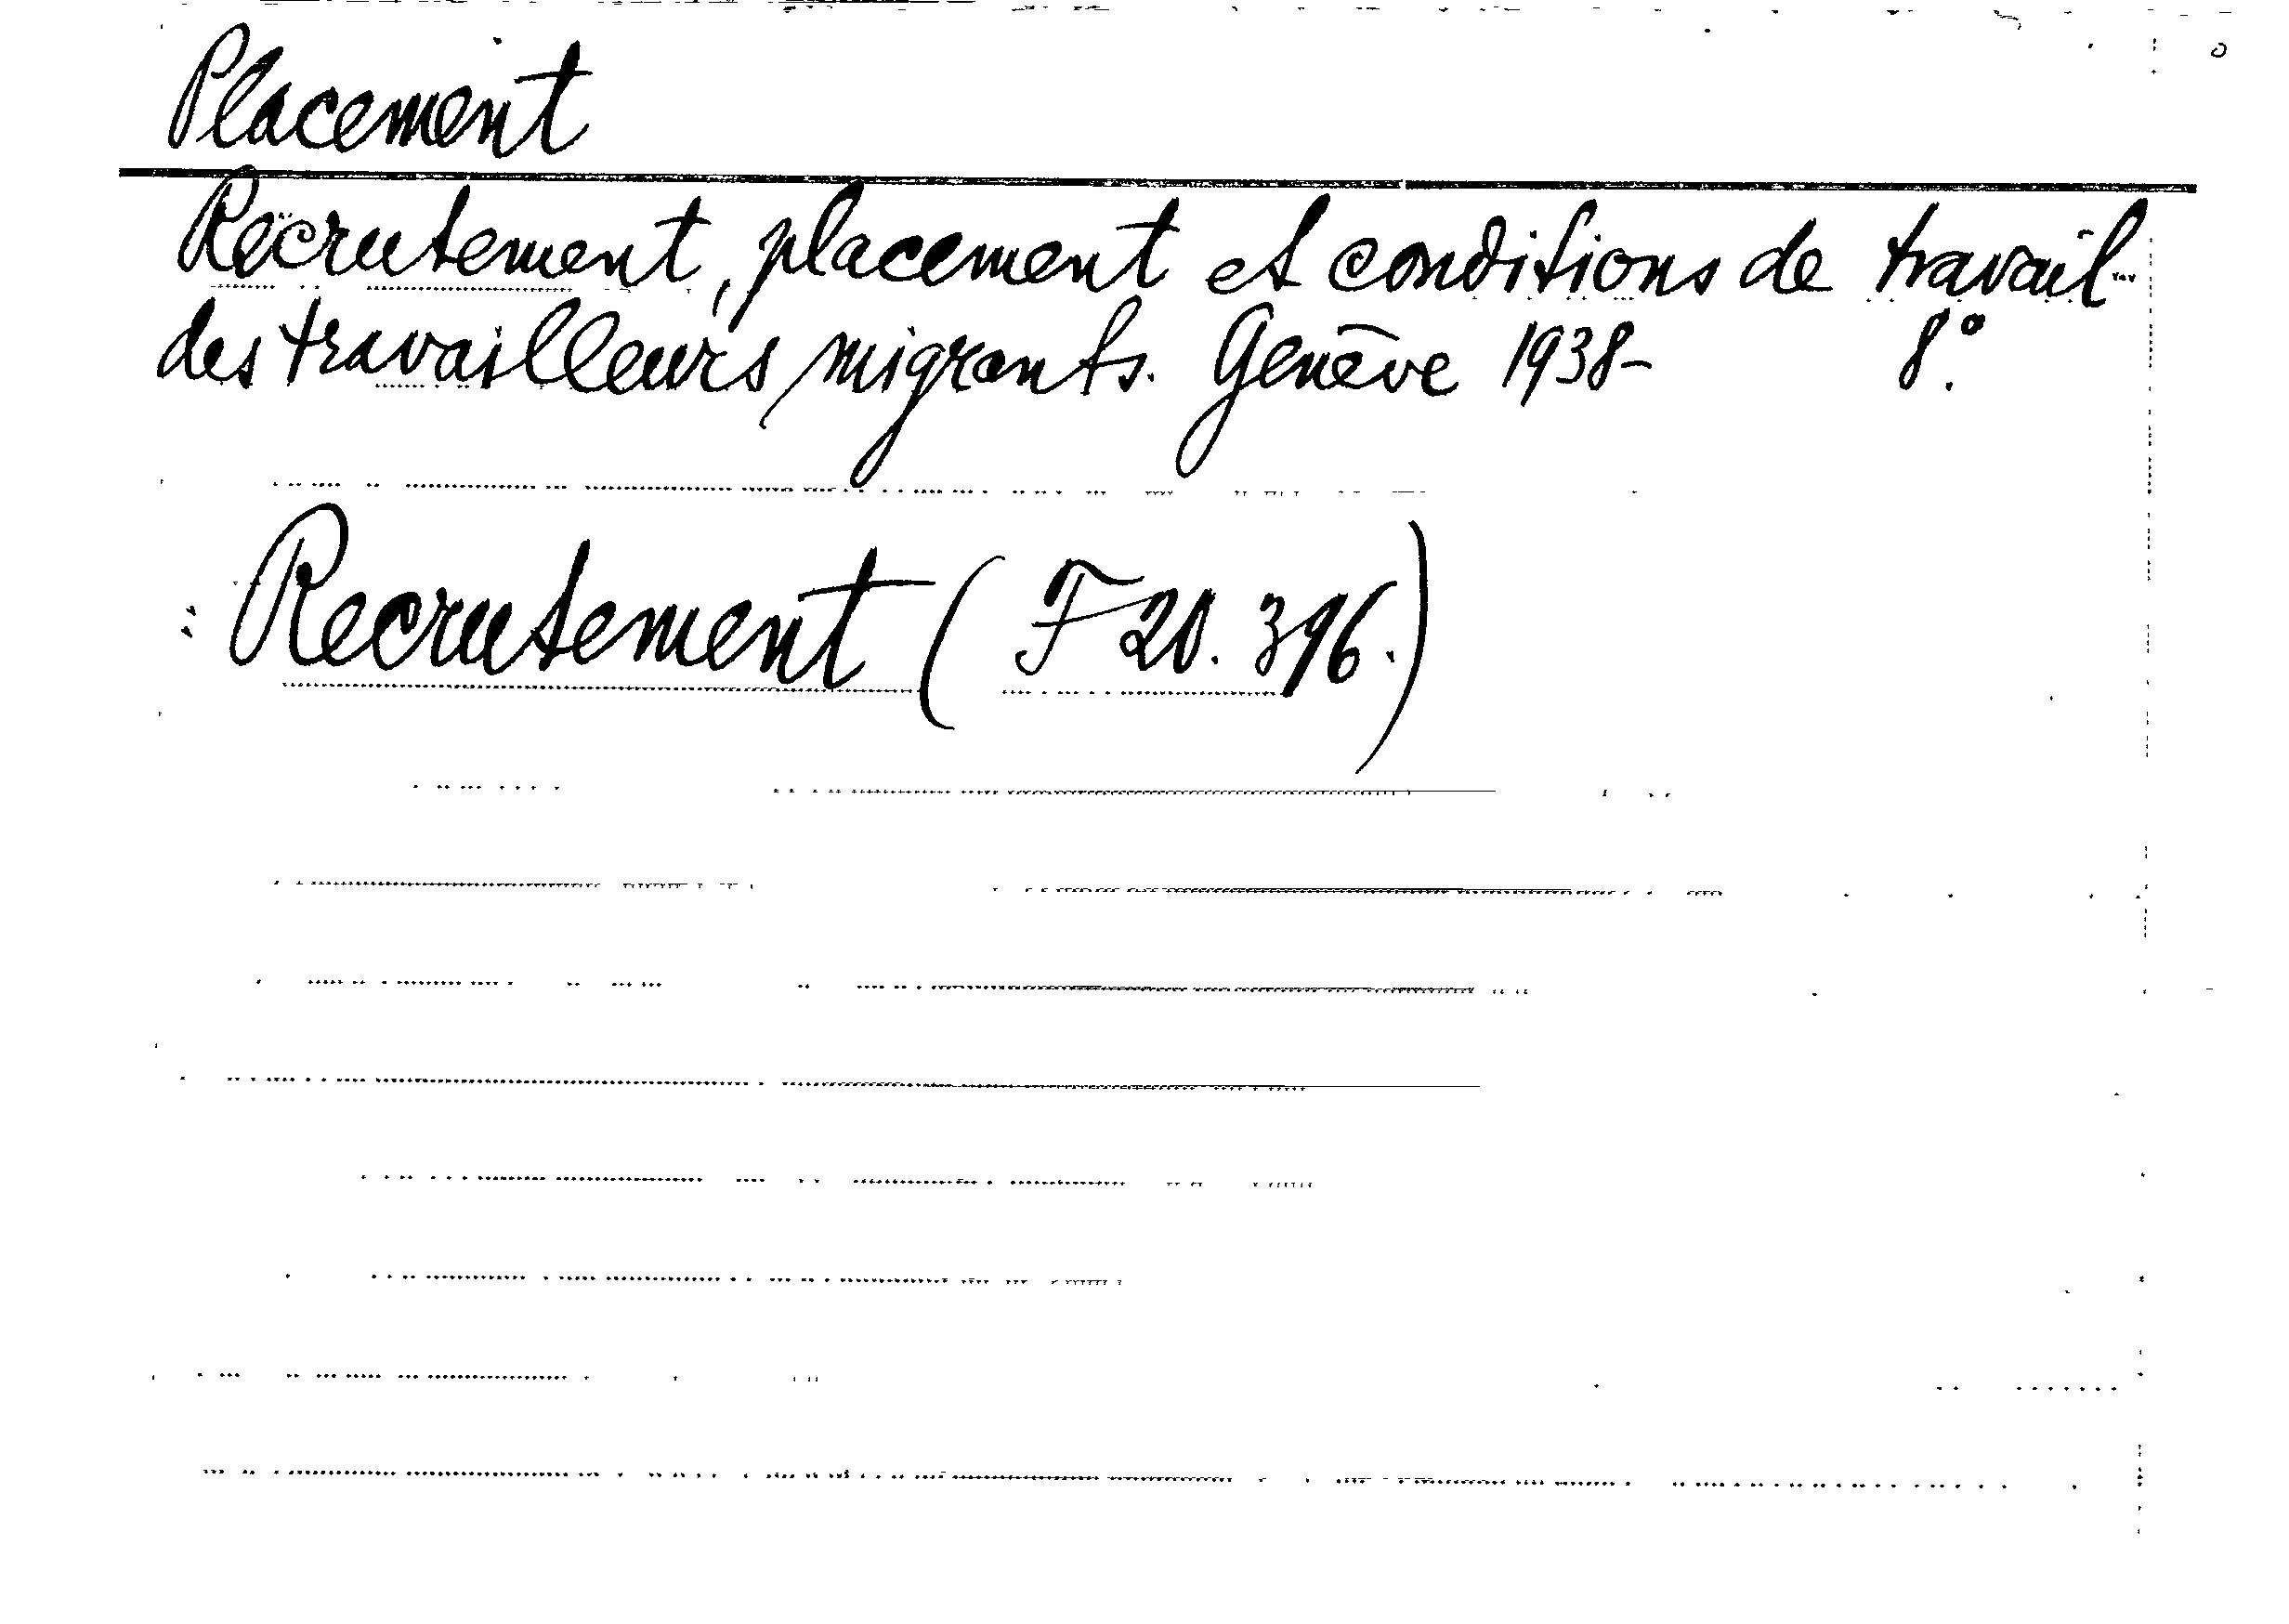 Placement
Recrutement, placement et conditions de travail
des travailleurs migrants. Genève 1938- 8°.
: Recrutement ( F 20. 396.)